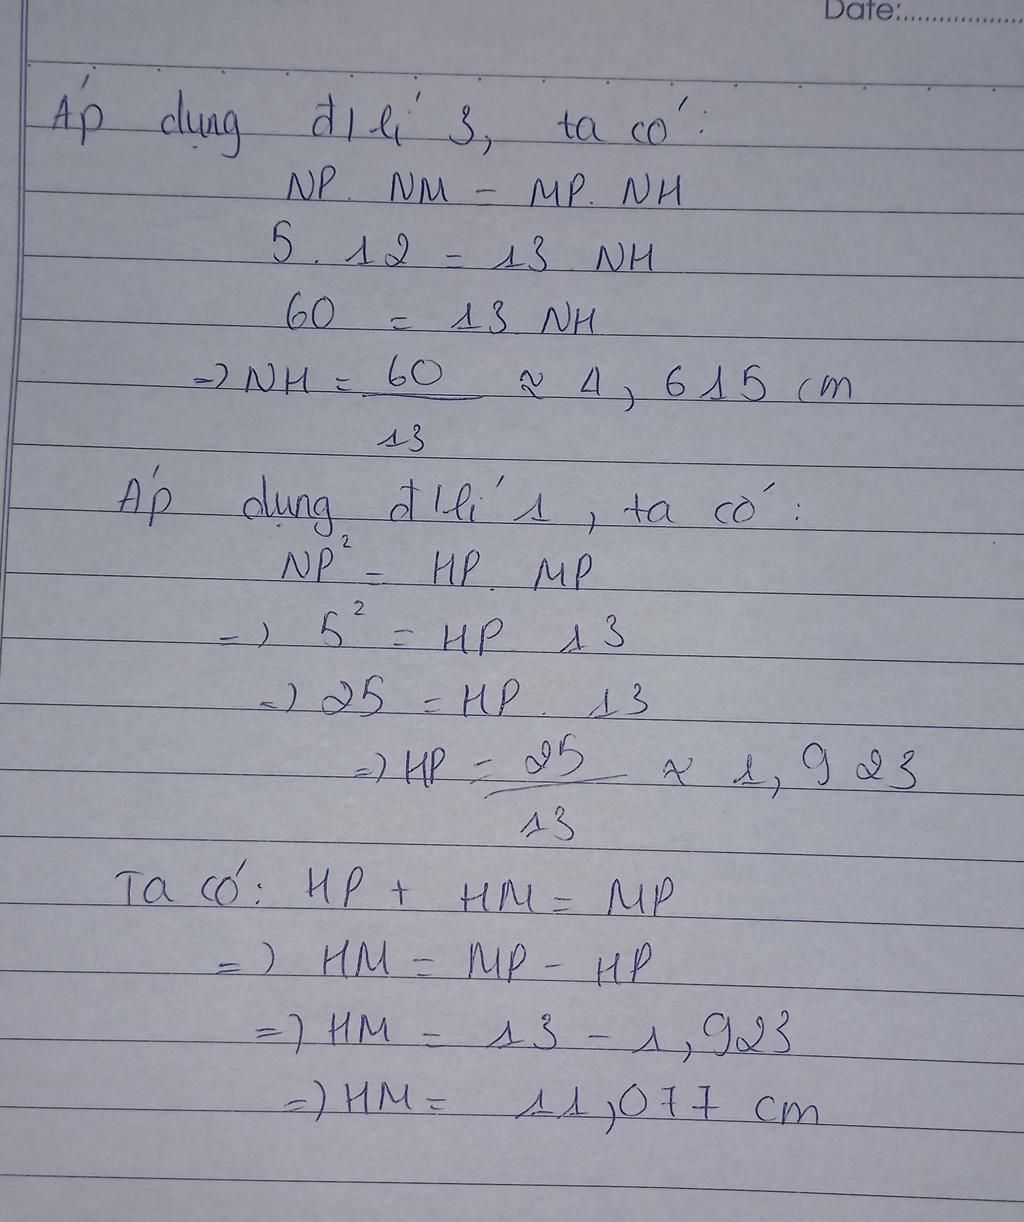 Date:....................
Áp dụng đ/lí 3, ta có:
NP. NM = MP. NH
5. 12 = 13 NH
60 = 13 NH
=> NH = 60/13 ≈ 4,615 cm
Áp dụng đ/lí 1, ta có:
NP² = HP. MP
=> 5² = HP 13
=> 25 = HP. 13
=> HP = 25/13 ≈ 1,923
Ta có: HP + HM = MP
=> HM = MP - HP
=> HM = 13 - 1,923
=> HM = 11,077 cm